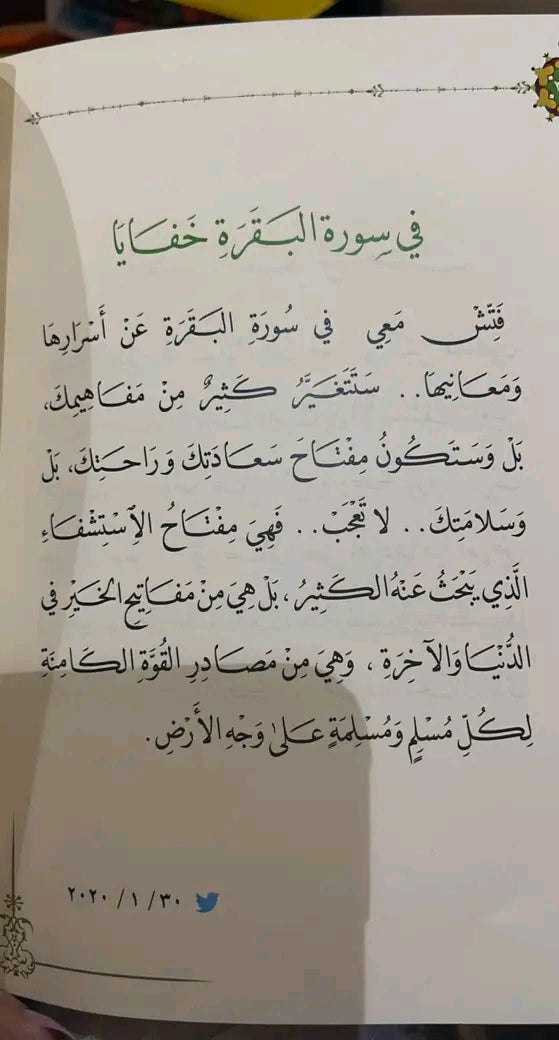 في سِورة البَقَرَةِ خَفَايَا
فَتِّشْ مَعِي في سُورَةِ البَقَرَةِ عَنْ أَسْرَارِهَا
وَمَعَانِيهَا.. سَتَتَغَيَّرُ كَثِيرٌ مِنْ مَفَاهِيمِكَ،
بَلْ وَسَتَكُونُ مِفْتَاحَ سَعَادَتِكَ وَرَاحَتِكَ، بَلْ
وَسَلامَتِكَ.. لا تَعْجَبْ.. فَهِيَ مِفْتَاحُ الاِسْتِشْفَاءِ
الَّذِي يَبْحَثُ عَنْهُ الكَثِيرُ، بَلْ هِيَ مِنْ مَفَاتِيحِ الخَيْرِ في
الدُّنْيَا وَالآخِرَةِ، وَهِيَ مِنْ مَصَادِرِ القُوَّةِ الكَامِنَةِ
لِكُلِّ مُسْلِمٍ وَمُسْلِمَةٍ عَلىٰ وَجْهِ الأَرْضِ.
٢٠٢٠ / ١ / ٣٠